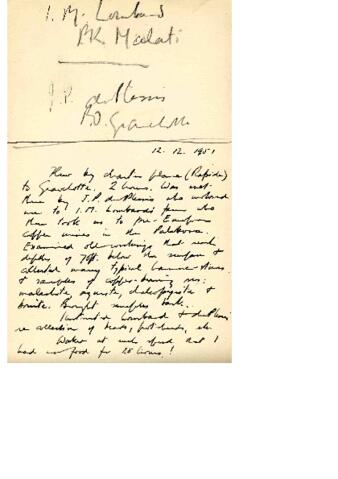 I. M. Lombard
P.K. Malati
J.P. du Plessis
P.O. Gravelotte
12.12.1951
Flew by charter plane (Rapide)
to Gravelotte. 2 hours. Was met
there by J.P. du Plessis who
me to I.M. Lombard's farm who
then took us to pre-European
copper mines in the Palabora.
Examined old workings that reach
depths of 70ft below the surface &
collected many typical
& samples of copper-bearing
malachite azurite, chalcopyrite &
bornite. Brought samples back.
Lombard & du Plessis
re collection of beads, potsherds, etc
Worked at such speed that I
had no food for 28 hours!